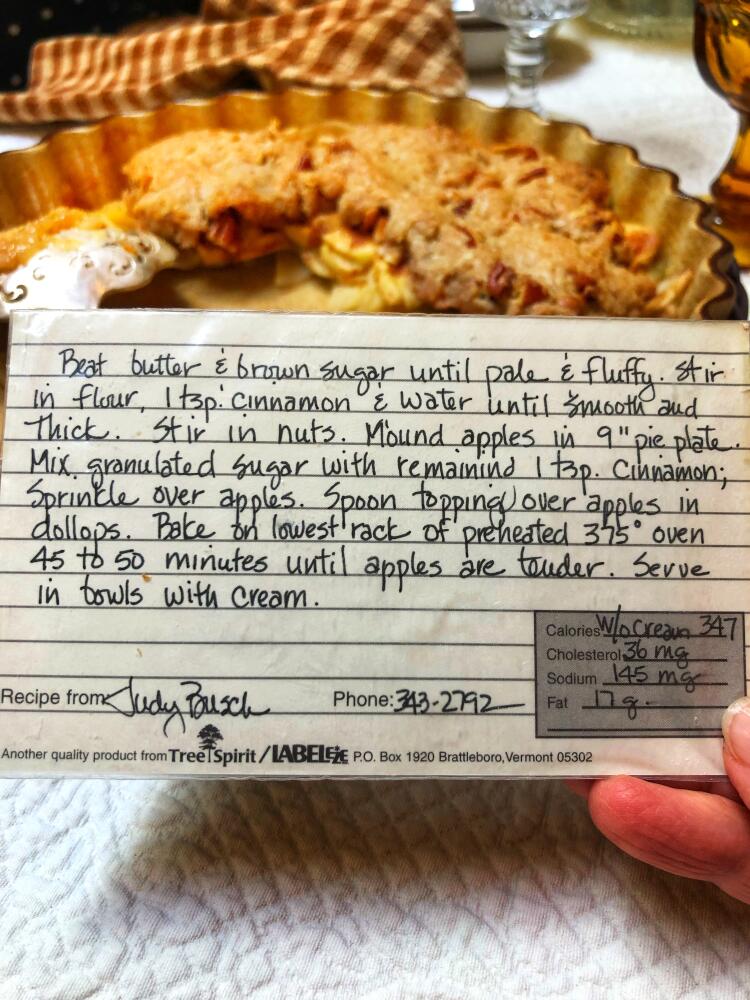 Beat butter & brown sugar until pale & fluffy. Stir
in flour, 1 tsp. cinnamon & water until smooth and
thick. Stir in nuts. Mound apples in 9" pie plate.
Mix granulated sugar with remainind 1 tsp. cinnamon;
Sprinkle over apples. Spoon topping over apples in
dollops. Bake on lowest rack of preheated 375° oven
45 to 50 minutes until apples are tender. Serve
in bowls with cream.
Calories W/o Cream 347
Cholesterol 36 mg
Sodium 145 mg
Fat 17 g.
Recipe from Judy Busch Phone: 343-2792
Another quality product from Tree Spirit / LABELEZE P.O. Box 1920 Brattleboro, Vermont 05302